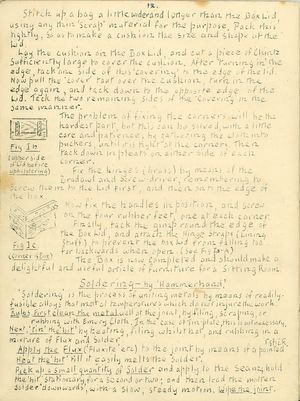 12.
Stitch up a bag a little wider and longer than the Box Lid
using any thin 'scrap' material for the purpose. Pack this
tightly, so as to make a cushion the size and shape of the
Lid.
Lay the cushion on the Box Lid, and cut a piece of Chintz
sufficiently large to cover the cushion. After 'turning in' the
edge, tack one side of this 'covering' to the edge of the lid.
Now pull the 'cover' taut over the cushion, turn in the
edge again, and tack down to the opposite edge of the
Lid. Tack the two remaining sides of the covering in the
same manner.
The problem of fixing the corners will be the
hardest part, but this can be solved, with a little
care and patience, by gathering the cloth into
pucker, until it is tight at the corners. Then
tack down in pleats on either side of each
corner.
Fig 1n
(underside
of lid before
upholstering)
Fix the hinges (brass) by means of the
Bradawl and screw-driver, remembering to
screw them to the lid first, and then on the edge of
the box.
Now fix the handles in position, and screw
on the four rubber feet, one at each corner.
Finally, tack the gimp round the edge of
the Box Lid, and attach the Hinge Straps (Lining
Stuff) to prevent the box lid from falling too
far backwards when open. (See Fig
Fig 1c
The Box is now completed and should make a
delightful and useful article of furniture for a Sitting Room.
Soldering - by 'Hammerhand'.
'Soldering' is the process of uniting metals by means of readily
fusible alloys that melt at temperatures which do not injure the work.
Rules first clean the metal well at the joint, by filing, scraping, or
rubbing with Emery Cloth. In the case of Tinplate this is not necessary.
Next, 'tin' the 'bit' by heating, filing whilst hot, and rubbing in a
mixture of Flux and Solder.
Apply the Flux ('Fluxite' etc) to the joint by means of a pointed stick.
Heat the 'bit' till it easily melts the Solder.
Pick up a small quantity of Solder and apply to the seam; hold
the 'bit' stationary for a second or two; and then lead the molten
solder downwards, with a slow, steady motion. Wipe the joint.